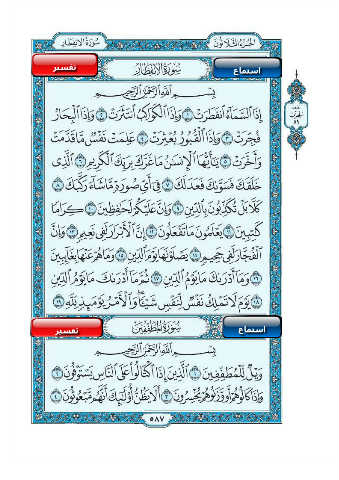 سُورَةُ الاِنفِطَارِ الجُزءُ الثَّلَاثُونَ
تفسير سُورَةُ الاِنفِطَارِ استماع
بِسْمِ اللَّهِ الرَّحْمَٰنِ الرَّحِيمِ
إِذَا السَّمَاءُ انفَطَرَتْ ١ وَإِذَا الْكَوَاكِبُ انتَثَرَتْ ٢ وَإِذَا الْبِحَارُ
فُجِّرَتْ ٣ وَإِذَا الْقُبُورُ بُعْثِرَتْ ٤ عَلِمَتْ نَفْسٌ مَّا قَدَّمَتْ
وَأَخَّرَتْ ٥ يَا أَيُّهَا الْإِنسَانُ مَا غَرَّكَ بِرَبِّكَ الْكَرِيمِ ٦ الَّذِي
خَلَقَكَ فَسَوَّاكَ فَعَدَلَكَ ٧ فِي أَيِّ صُورَةٍ مَّا شَاءَ رَكَّبَكَ ٨
كَلَّا بَلْ تُكَذِّبُونَ بِالدِّينِ ٩ وَإِنَّ عَلَيْكُمْ لَحَافِظِينَ ١٠ كِرَامًا
كَاتِبِينَ ١١ يَعْلَمُونَ مَا تَفْعَلُونَ ١٢ إِنَّ الْأَبْرَارَ لَفِي نَعِيمٍ ١٣ وَإِنَّ
الْفُجَّارَ لَفِي جَحِيمٍ ١٤ يَصْلَوْنَهَا يَوْمَ الدِّينِ ١٥ وَمَا هُمْ عَنْهَا بِغَائِبِينَ
١٦ وَمَا أَدْرَاكَ مَا يَوْمُ الدِّينِ ١٧ ثُمَّ مَا أَدْرَاكَ مَا يَوْمُ الدِّينِ
١٨ يَوْمَ لَا تَمْلِكُ نَفْسٌ لِّنَفْسٍ شَيْئًا وَالْأَمْرُ يَوْمَئِذٍ لِّلَّهِ ١٩
تفسير سُورَةُ المُطَفِّفِينَ استماع
بِسْمِ اللَّهِ الرَّحْمَٰنِ الرَّحِيمِ
وَيْلٌ لِّلْمُطَفِّفِينَ ١ الَّذِينَ إِذَا اكْتَالُوا عَلَى النَّاسِ يَسْتَوْفُونَ ٢
وَإِذَا كَالُوهُمْ أَو وَّزَنُوهُمْ يُخْسِرُونَ ٣ أَلَا يَظُنُّ أُولَٰئِكَ أَنَّهُم مَّبْعُوثُونَ ٤
٥٨٧